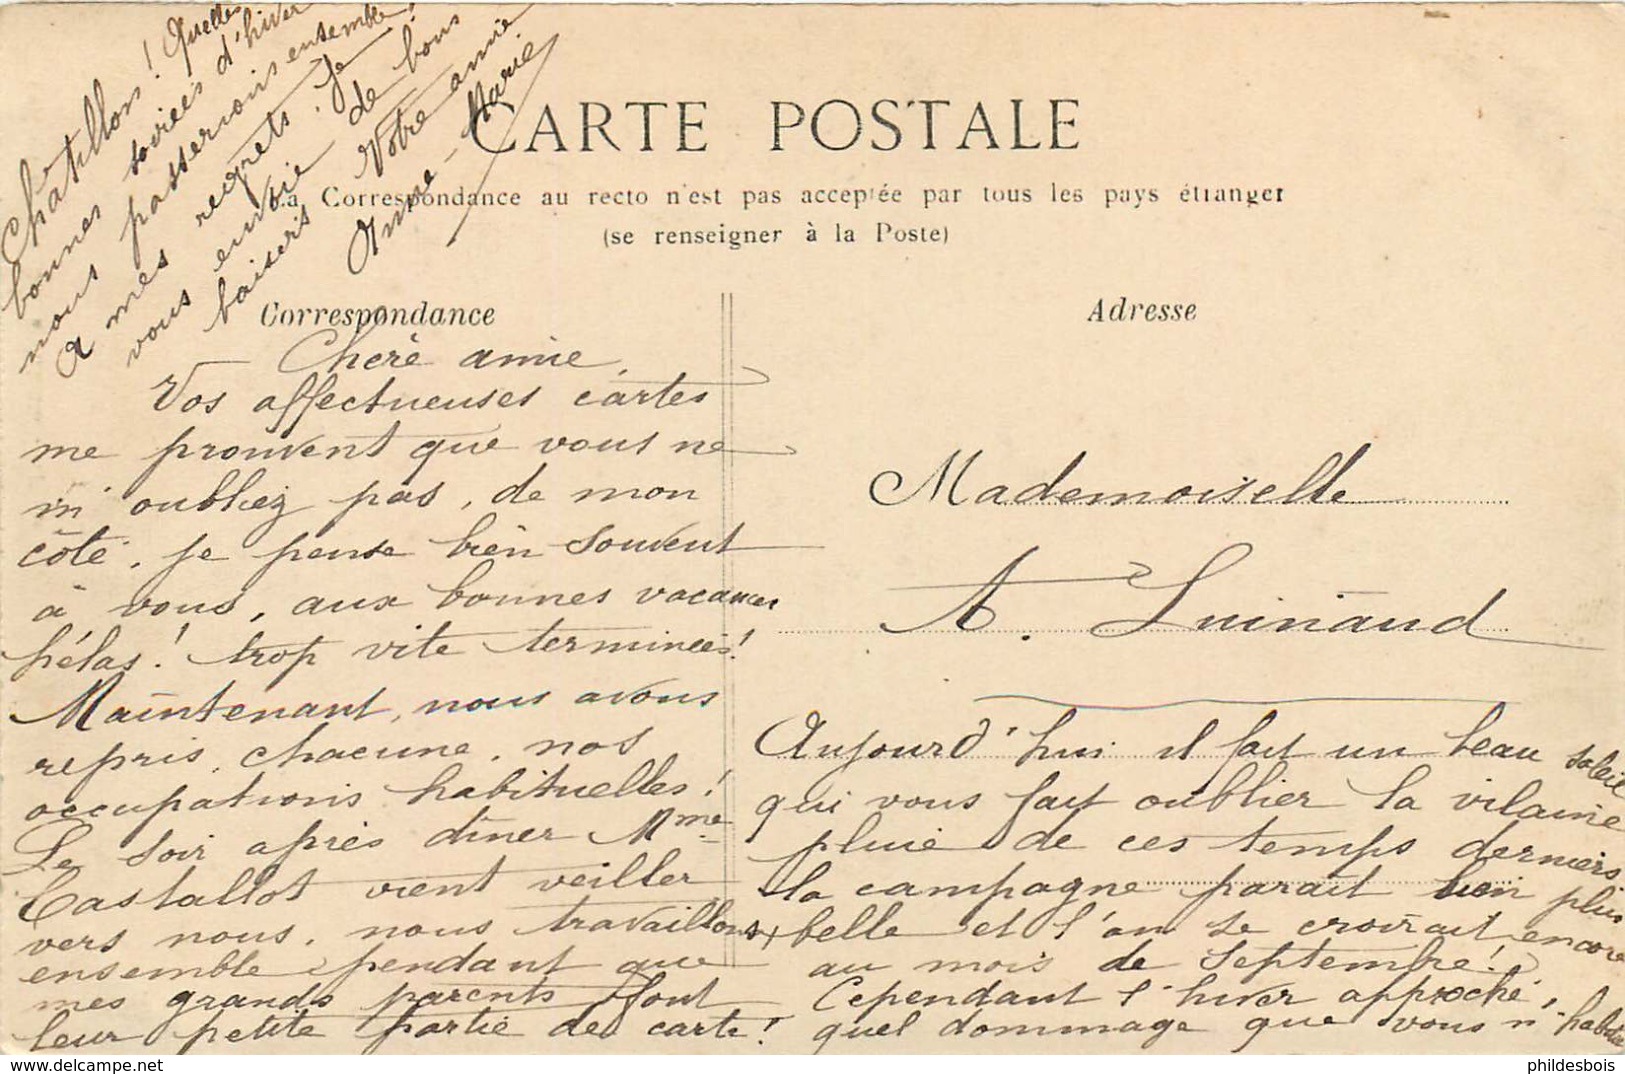 CARTE POSTALE
La Correspondance au recto n'est pas acceptée par tous les pays étranger
(se renseigner à la Poste)
Correspondance
Adresse
Chère amie,
Vos affectueuses cartes
me prouvent que vous ne
m'oubliez pas, de mon
côté, je pense bien souvent
à vous, aux bonnes vacances
hélas! trop vite terminées!
Maintenant, nous avons
repris, chacune, nos
occupations habituelles!
Le soir après dîner Mme
Castallot vient veiller
vers nous, nous travaillons
ensemble pendant que
mes grands parents font
leur petite partie de carte!
Mademoiselle
A. Luinaud
Aujourd'hui il fait un beau soleil
qui vous fait oublier la vilaine
pluie de ces temps derniers
la campagne parait bien plus
belle et l'on se croirait encore
au mois de Septembre!
Cependant l'hiver approche,
quel dommage que vous n'habitiez
Chatillon! Quelles
bonnes soirées d'hiver
nous passerions ensemble!
A mes regrets. Je
vous envoie de bons
baisers Votre amie
Anne-Marie
phildesbois